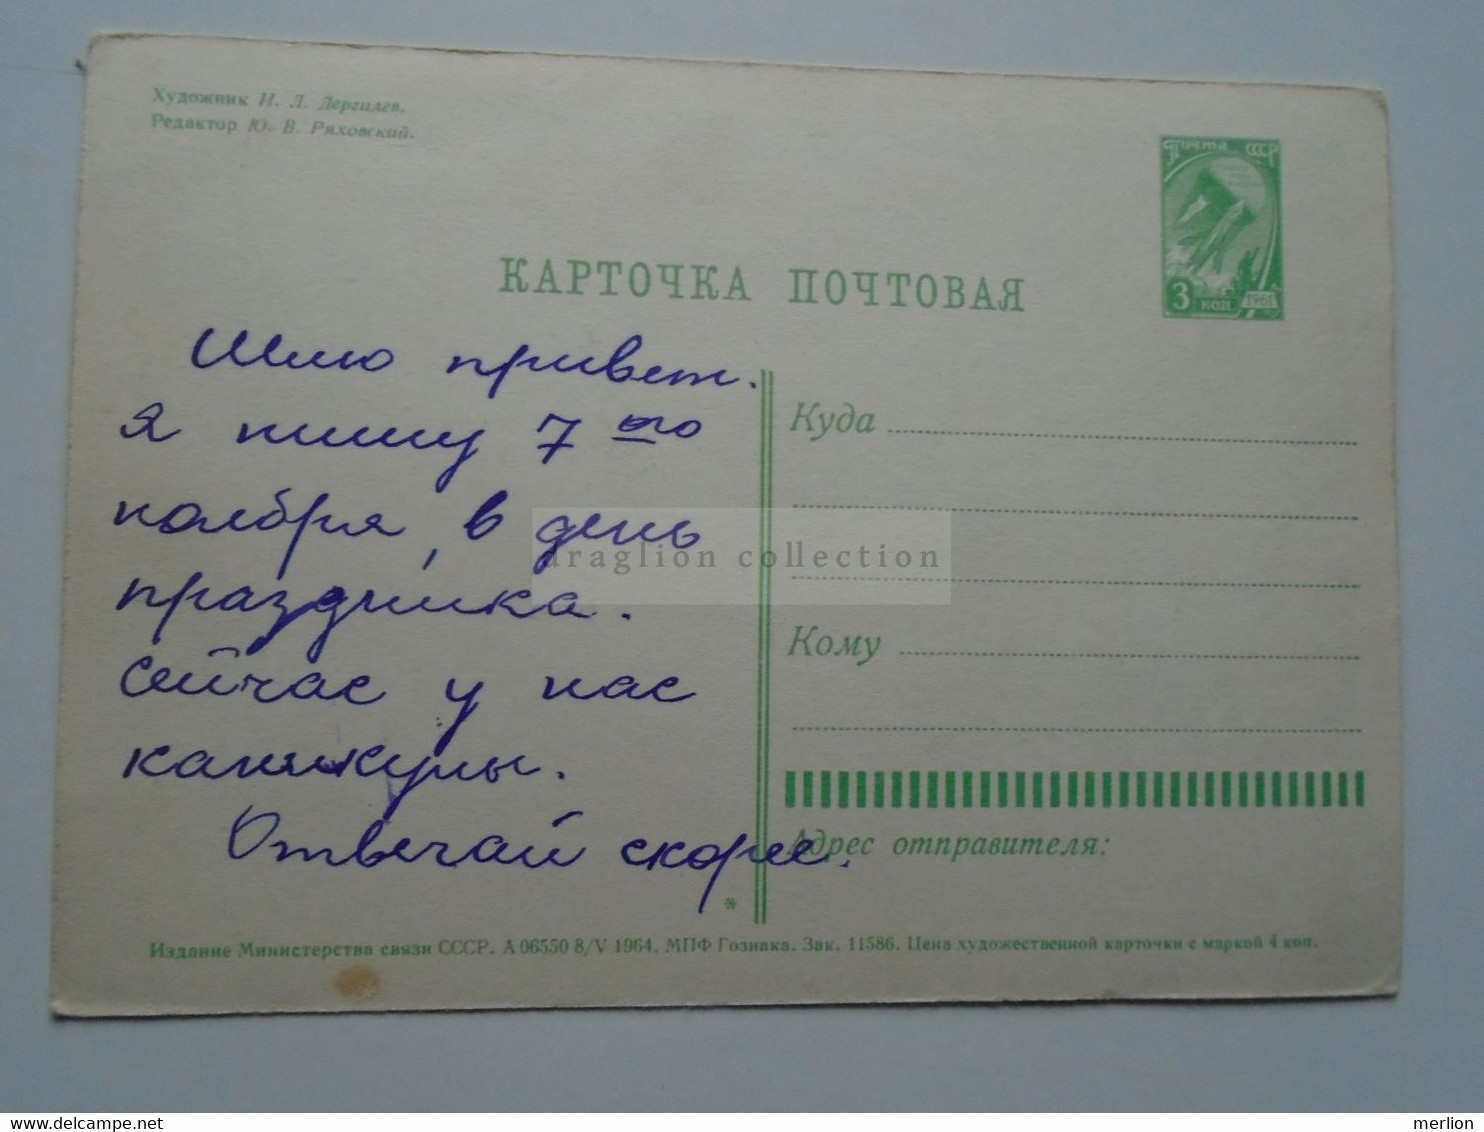 Художник И. Л. Дергилев.
Редактор Ю. В. Ряховский.
почта СССР
3 коп 1961
КАРТОЧКА ПОЧТОВАЯ
Шлю привет.
Я пишу 7го
ноября, в день
праздника.
Сейчас у нас
каникулы.
Отвечай скорее.
Куда
Кому
Адрес отправителя:
draglion collection
*
Издание Министерства связи СССР. А 06550 8/V 1964. МПФ Гознака. Зак. 11586. Цена художественной карточки с маркой 4 коп.
merlion